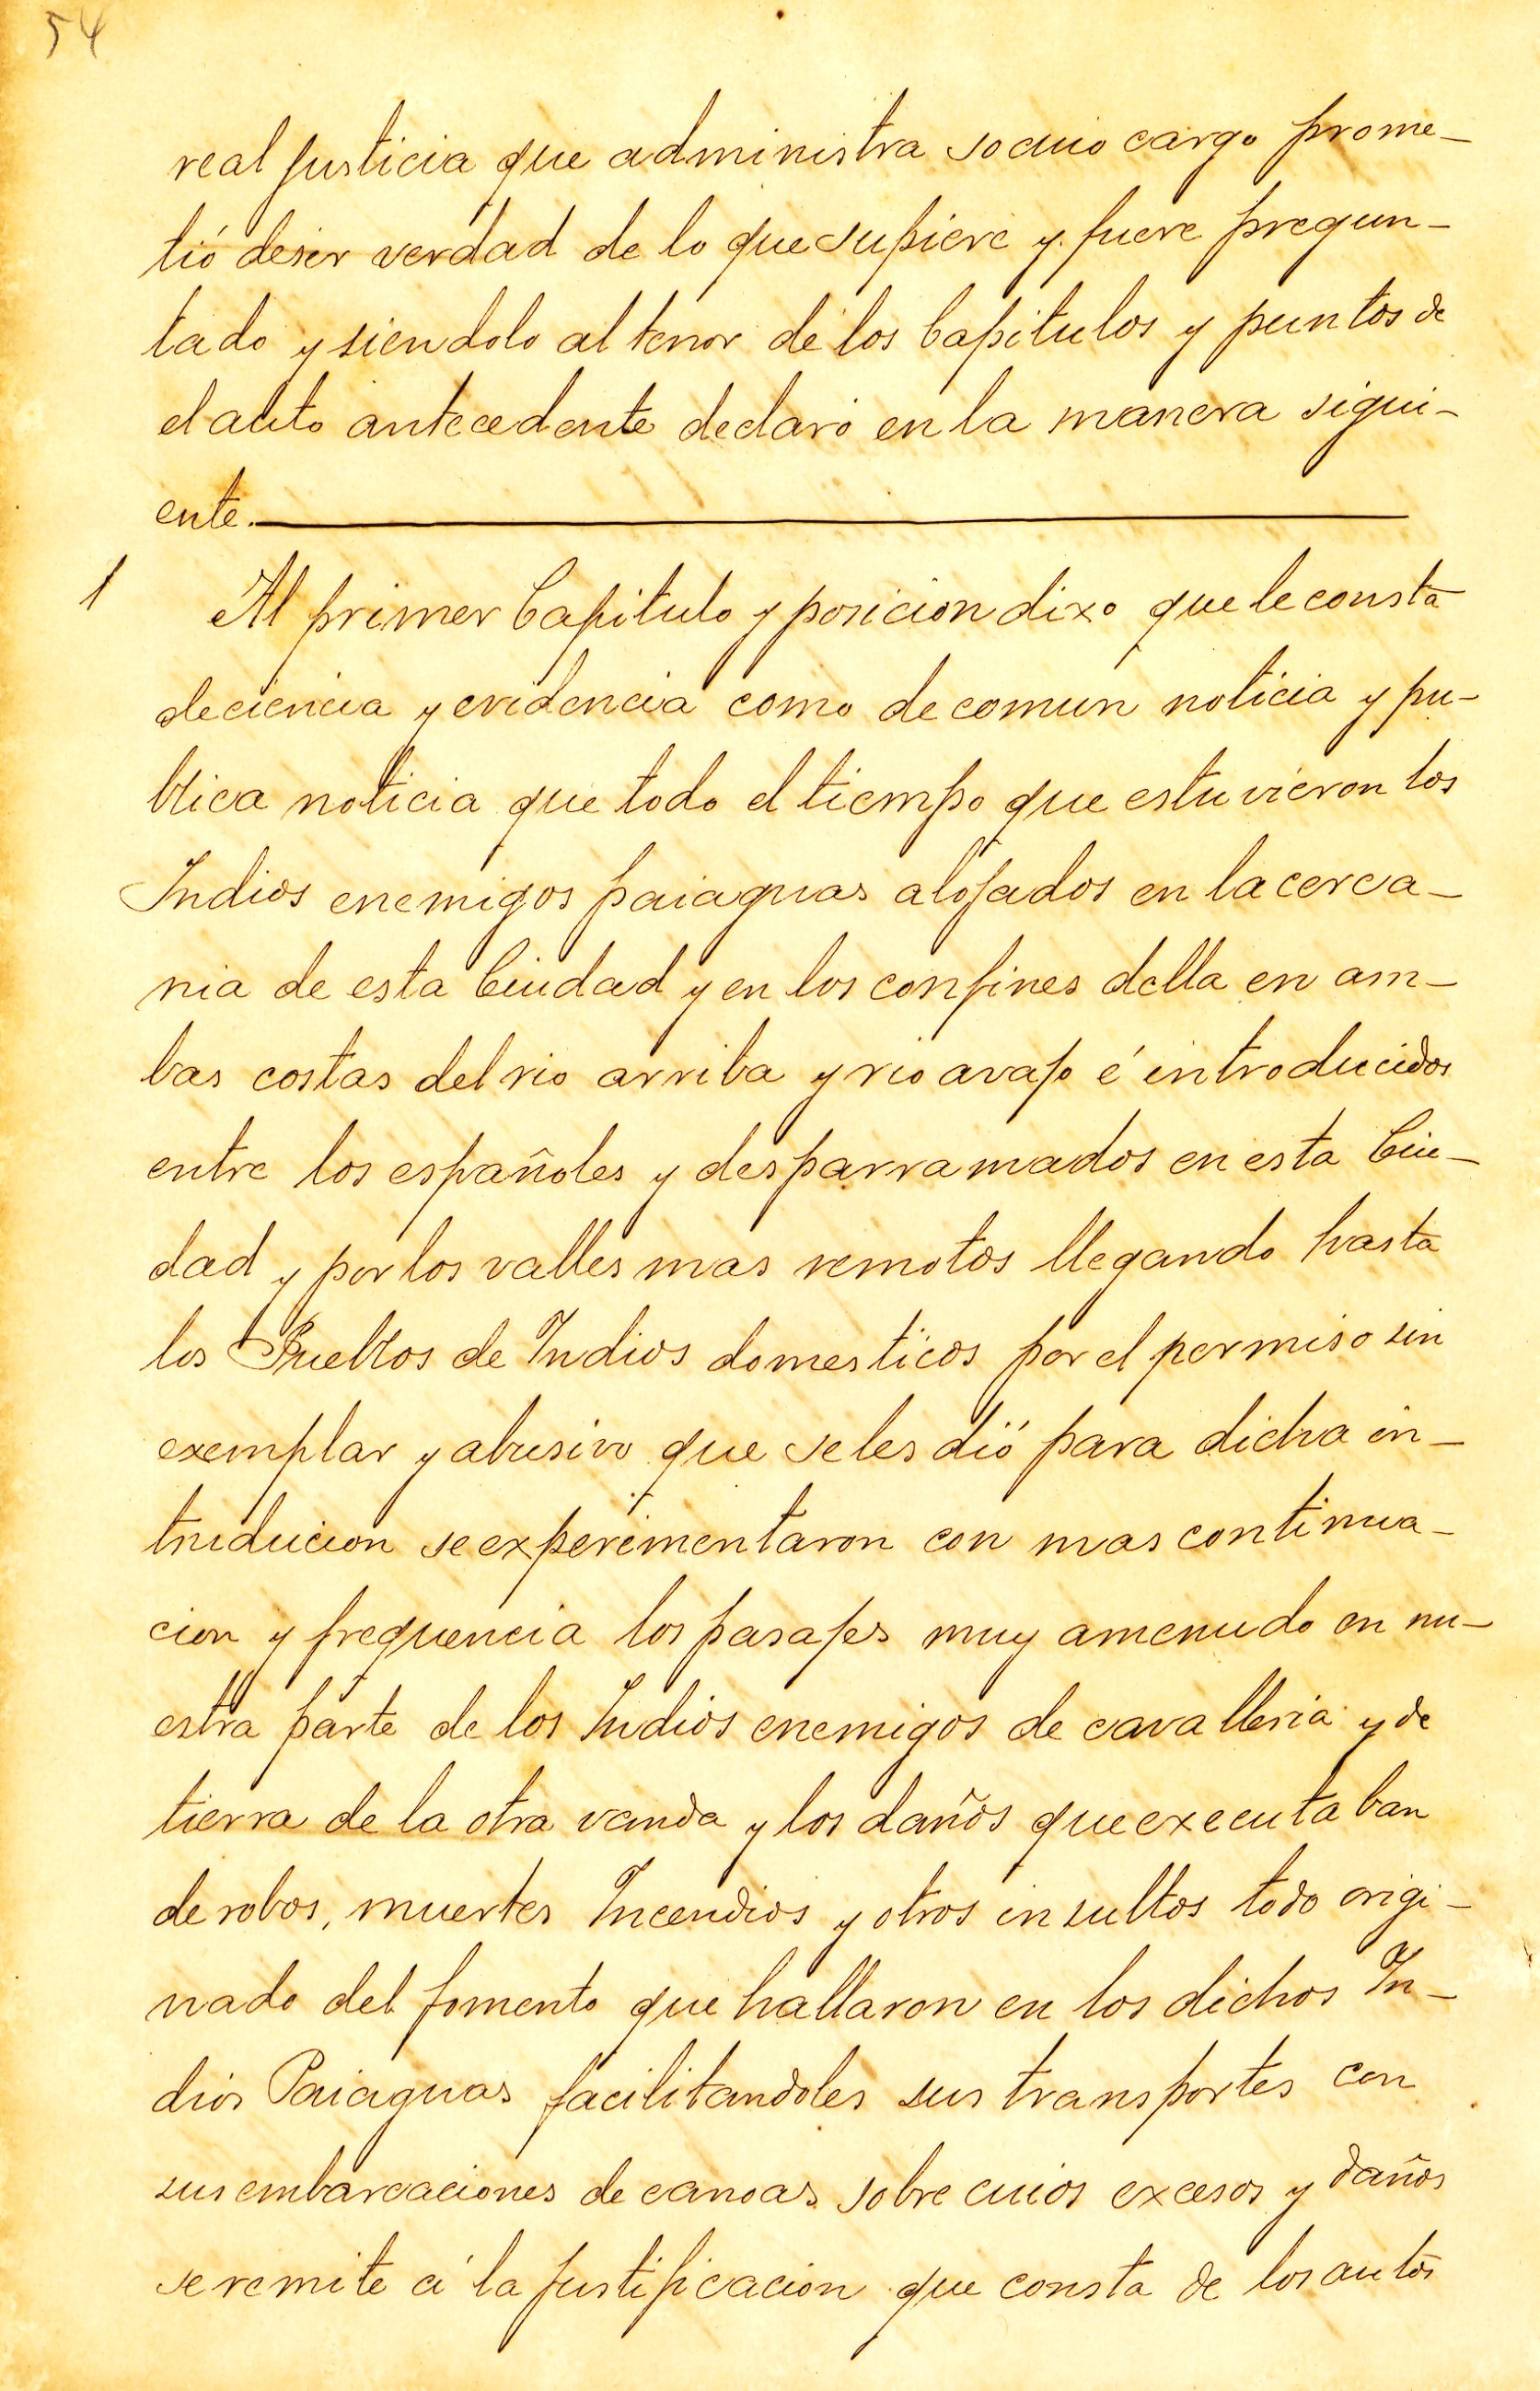 54
real justicia que administra so cuio cargo prome-
tió desir verdad de lo que supiere y fuere pregun-
tado y siendolo al tenor de los Capitulos y puntos de
el auto antecedente declaró en la manera sigui-
ente.
1 Al primer Capitulo y posicion dixo que le consta
de ciencia y evidencia como de comun noticia y pu-
blica noticia que todo el tiempo que estuvieron los
Indios enemigos paiaguas alojados en la cerca-
nia de esta Ciudad y en los confines della en am-
bas costas del rio arriba y rio avajo é introducidos
entre los españoles y desparramados en esta Ciu-
dad y por los valles mas remotos llegando hasta
los Pueblos de Indios domesticos por el permiso sin
exemplar y abusivo que se les dió para dicha in-
truducion se experimentaron con mas continua-
cion y frequencia los pasajes muy amenudo en nu-
estra parte de los Indios enemigos de cavalleria y de
tierra de la otra vanda y los daños que executaban
de robos, muertes Incendios y otros insultos todo origi-
nado del fomento que hallaron en los dichos In-
dios Paiaguas facilitandoles sus transportes con
sus embarcaciones de canoas sobre cuios excesos y daños
se remite á la justificacion que consta de los autos